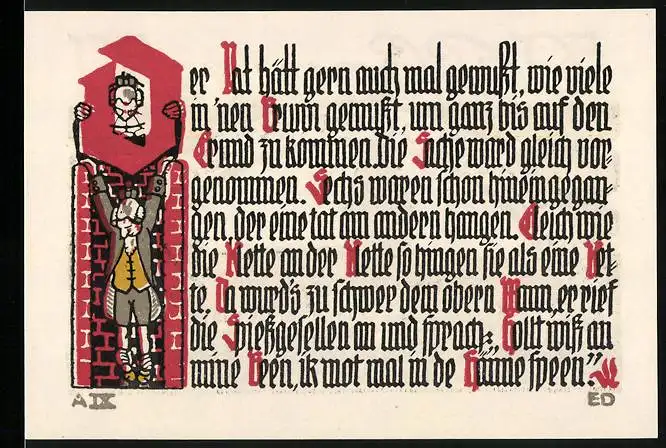 Der Rat hätt gern auch mal gewußt, wie viele
in 'nen Brunn gemußt, um ganz bis auf den
Grund zu kommen. Die Sache ward gleich vor-
genommen. Sechs waren schon hineingegan-
gen, der eine tat am andern hangen. Gleich wie
die Klette an der Klette so hingen sie als eine Ket-
te. Da wurd's zu schwer dem obern Mann, er rief
die Spießgesellen an und sprach: „Hollt wiß an
mine Been, ik mot mal in de Hänne speen."
A IX ED